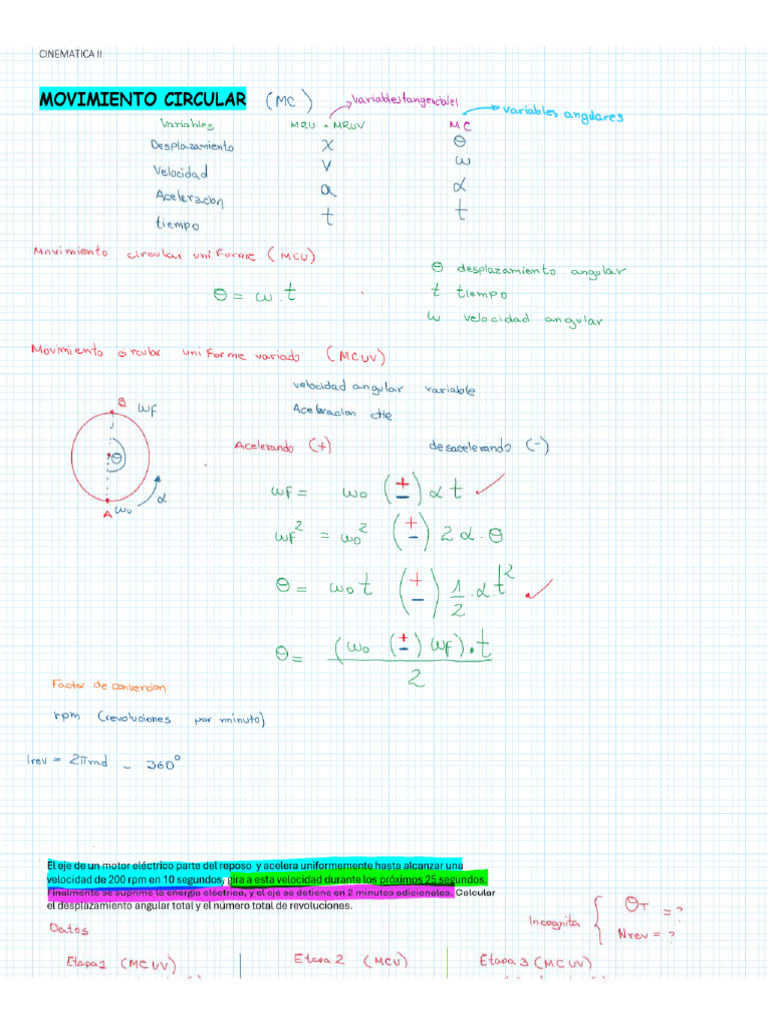 CINEMATICA II
MOVIMIENTO CIRCULAR (MC)
variables tangenciales
variables angulares
Variables MRU - MRUV MC
Desplazamiento X θ
Velocidad V ω
Aceleracion a α
tiempo t t
Movimiento circular uniforme (MCU)
θ = ω . t
θ desplazamiento angular
t tiempo
ω velocidad angular
Movimiento circular uniforme variado (MCUV)
velocidad angular variable
Aceleracion cte
B ωf
θ
α
A ω₀
Acelerando (+) desacelerando (-)
ωf = ω₀ (±) α t
ωf² = ω₀² (±) 2 α . θ
θ = ω₀ t (±) 1/2 . α . t²
θ = (ω₀ (±) ωf) . t / 2
Factor de conversion
rpm (revoluciones por minuto)
1rev = 2πrad - 360°
El eje de un motor eléctrico parte del reposo y acelera uniformemente hasta alcanzar una
velocidad de 200 rpm en 10 segundos, gira a esta velocidad durante los próximos 25 segundos.
Finalmente se suprime la energía eléctrica, y el eje se detiene en 2 minutos adicionales. Calcular
el desplazamiento angular total y el número total de revoluciones.
Datos
Incognita { θT = ?
Nrev = ?
Etapa 1 (MCUV) Etapa 2 (MCU) Etapa 3 (MCUV)